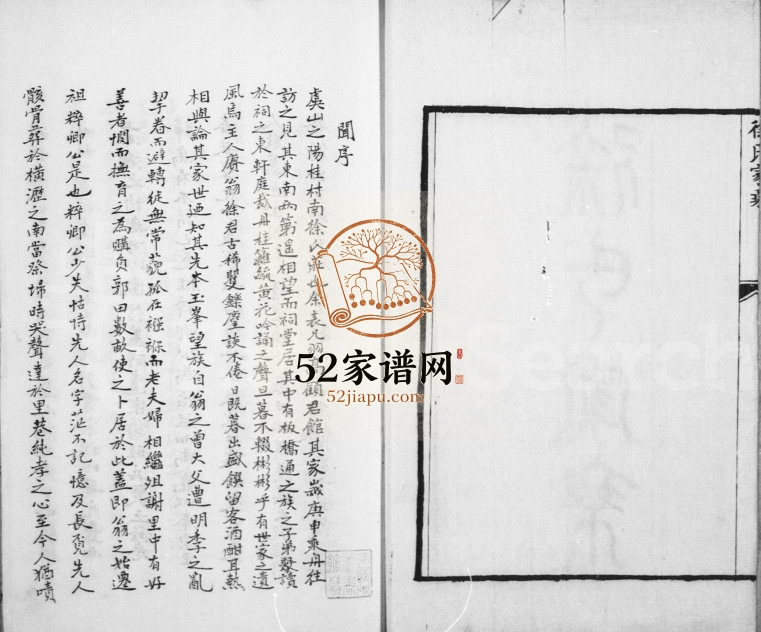 徐氏家乘
聞序
虞山之陽桂村南徐氏
余表兄羽
顧君館其家歲庚申乘丹往
訪之見其東南兩第遥相望而祠堂居其中有板橋通之族之子弟聚讀
於祠之東軒庭栽丹桂籬藝黄花吟誦之聲旦暮不輟彬彬乎有世家之遺
風焉主人賡翁徐君古稀矍鑠麈談不倦日既暮出盛饌留客酒酣耳熱
相與論其家世迺知其先本玉峯望族自翁之曾大父遭明季之亂
挈眷而避轉徙無常藐孤在襁褓而老夫婦相繼殂謝里中有好
善者憫而撫育之為購負郭田數畝使之卜居於此蓋即翁之始遷
祖粹卿公是也粹卿公少失怙恃先人名字茫不記憶及長覓先人
骸骨葬於橫瀝之南當祭埽時哭聲達於里巷純孝之心至今人猶嘖
52家谱网
52jiapu.com